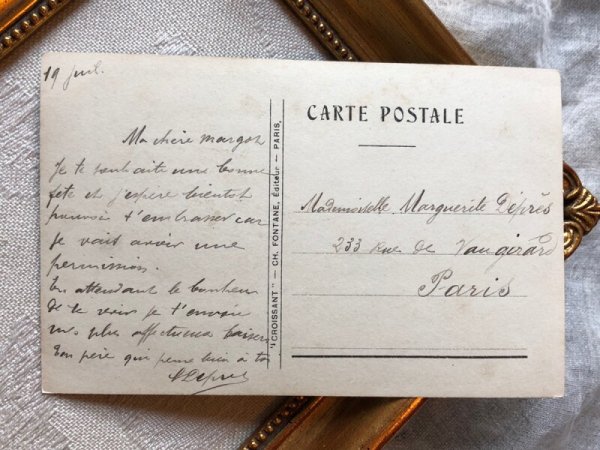 19 juil.
Ma chère Margot
Je te souhaite une bonne
fête et j'espère bientôt
t'embrasser car
je vait avoir une
permission.
En attendant le bonheur
de te voir je t'envoie
mes plus affectueux baisers
Ton père qui pense bien à toi
"CROISSANT" — CH. FONTANE, Éditeur — PARIS,
CARTE POSTALE
Mademoiselle Marguerite Déprès
233 Rue de Vaugirard
Paris